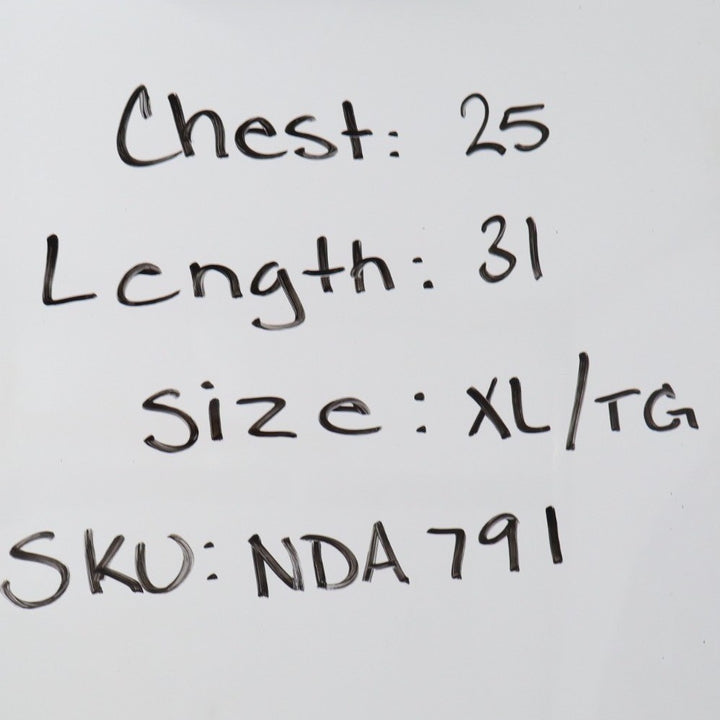 Chest: 25
Length: 31
Size: XL/TG
SKU: NDA 791